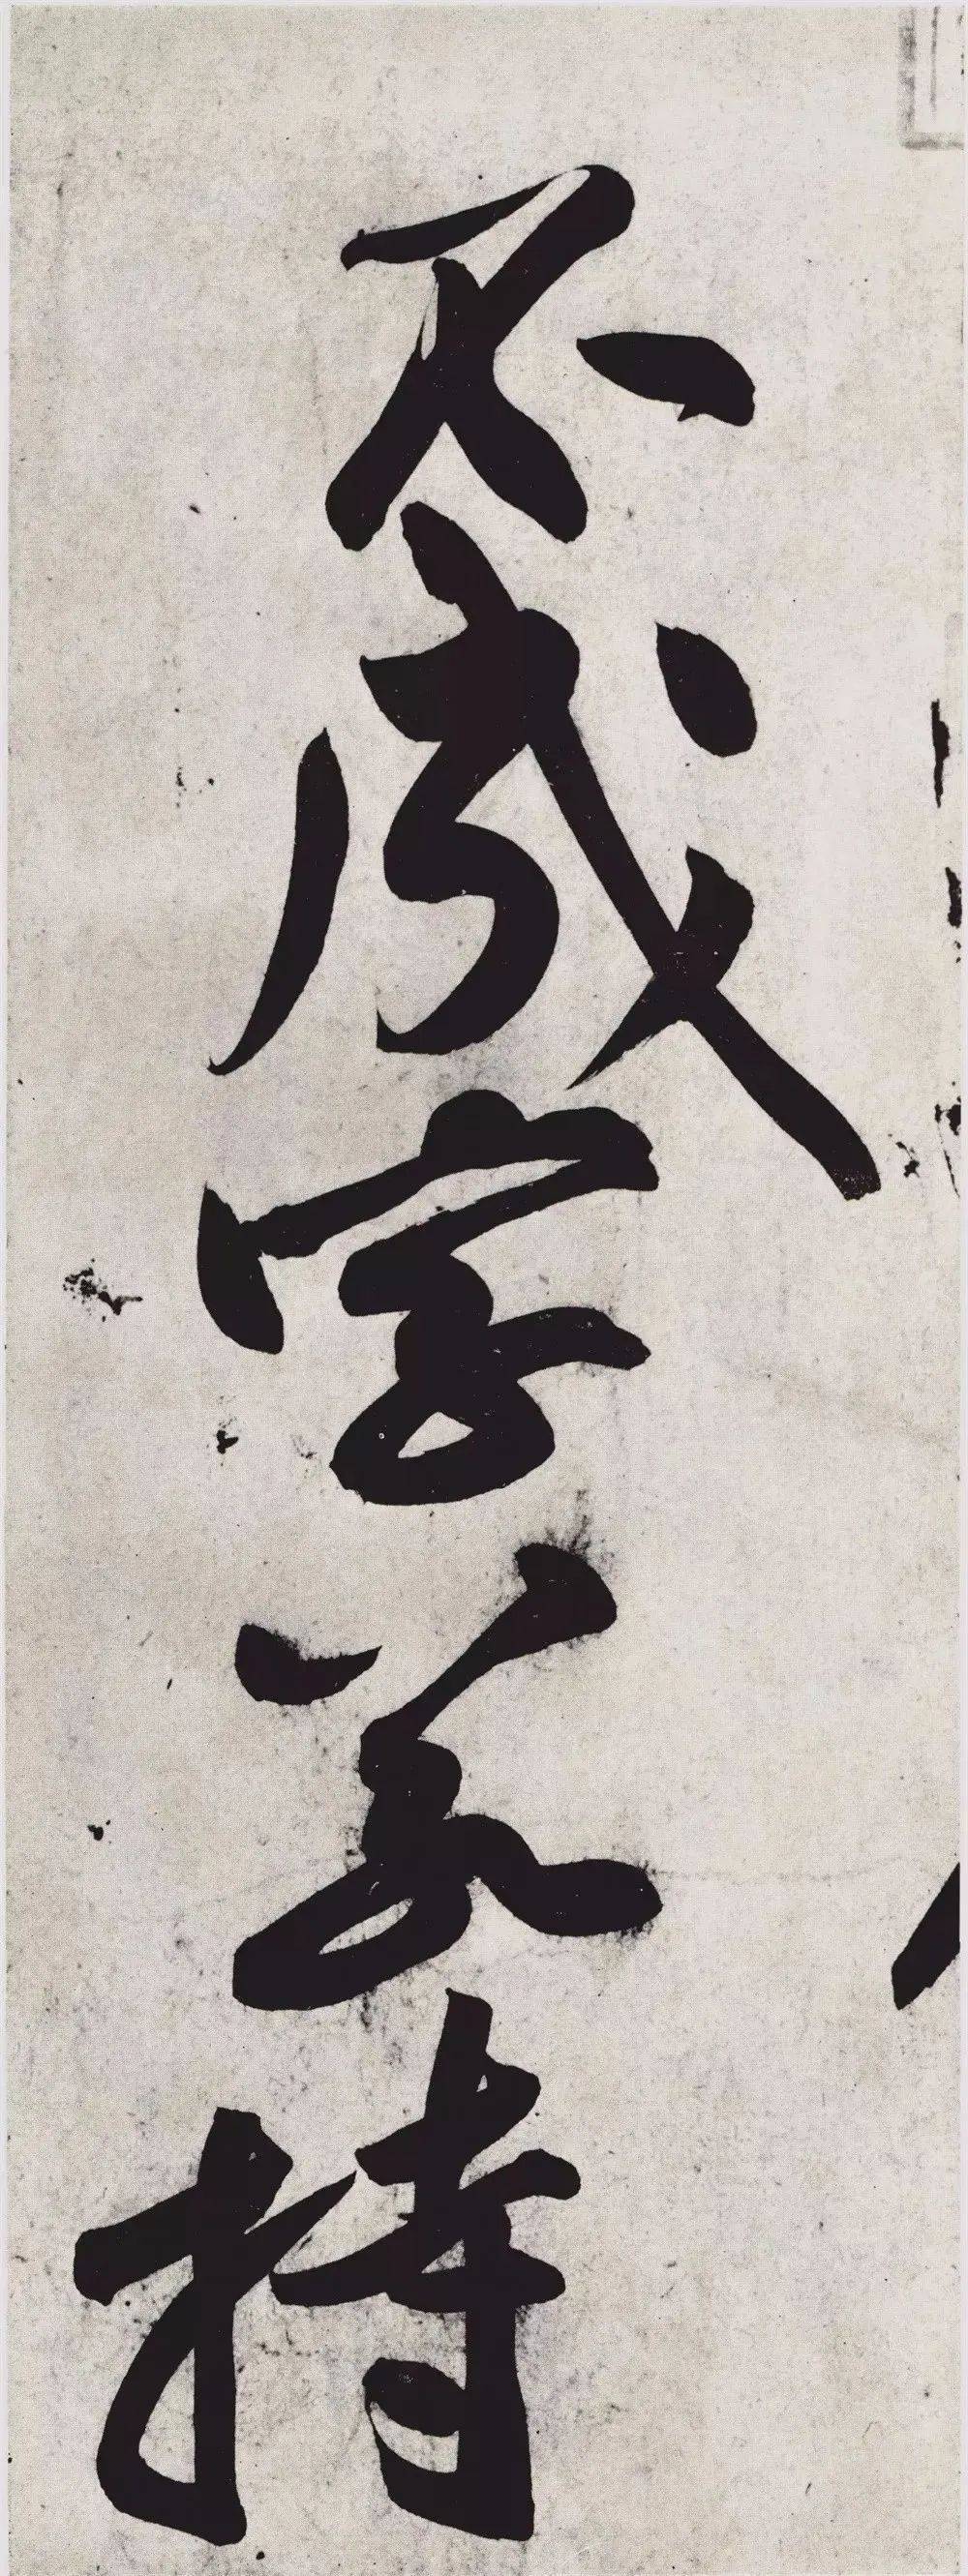 不成字若持